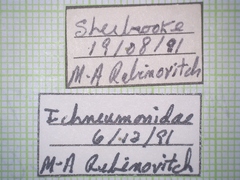 Sherbrooke
19/08/91
M-A Rabinovitch
Ichneumonidae
6/12/91
M-A Rabinovitch